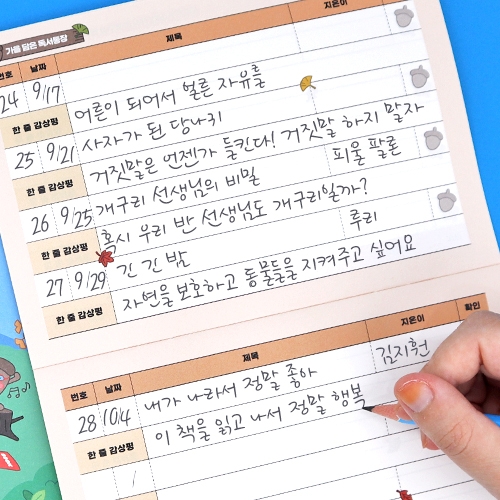 가을 담은 독서통장
번호 날짜 제목 지은이
24 9/17
한 줄 감상평 어른이 되어서 얼른 자유를
25 9/21 사자가 된 당나귀
한 줄 감상평 거짓말은 언젠가 들킨다! 거짓말 하지 말자
26 9/25 개구리 선생님의 비밀 피울 팔론
한 줄 감상평 혹시 우리 반 선생님도 개구리일까?
27 9/29 긴긴밤 루리
한 줄 감상평 자연을 보호하고 동물들을 지켜주고 싶어요
번호 날짜 제목 지은이 확인
28 10/4 내가 나라서 정말 좋아 김지훤
한 줄 감상평 이 책을 읽고 나서 정말 행복
/